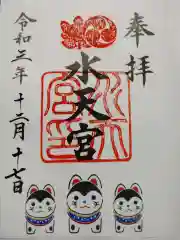 奉拝
水天宮
令和三年十二月十七日